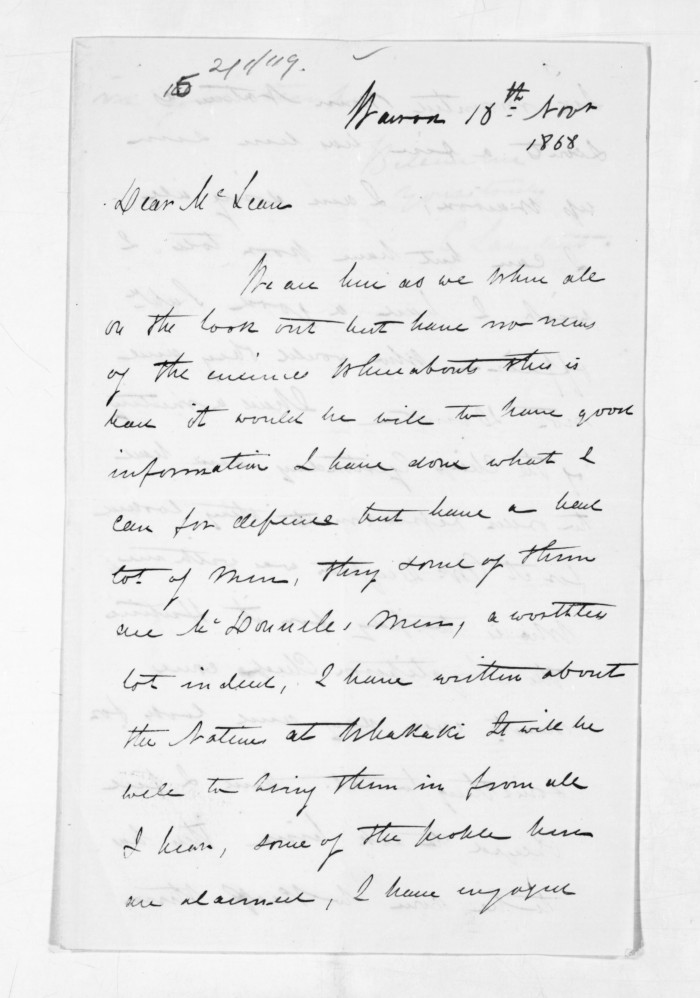 15 211/119.
Wairoa 18th Novr
1868
Dear McLean
We are here as we where all
on the look out but have no news
of the enimies whereabouts this is
bad it would be well to have good
information I have done what I
can for defence but have a bad
lot of men, they some of them
are McDonnels, men, a worthless
lot indeed, I have written about
the Natives at Whakaki It will be
well to bring them in from all
I hear, some of the people here
are alarmed, I have engaged